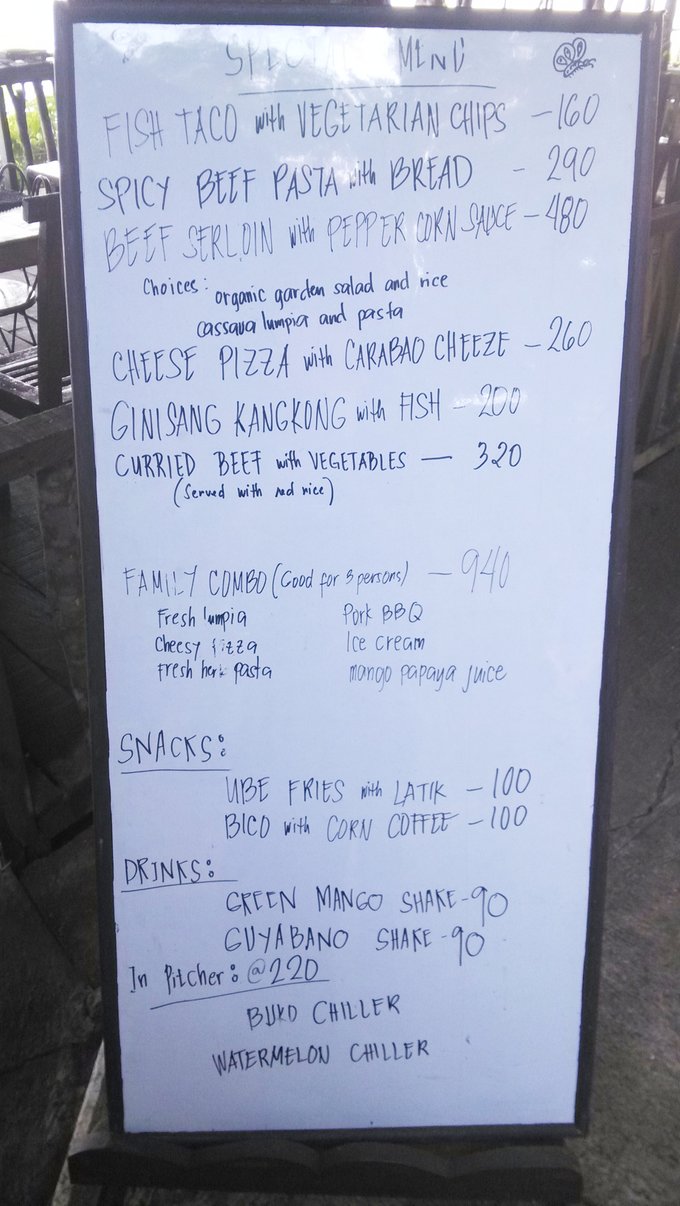 SPECIAL MENU
FISH TACO with VEGETARIAN CHIPS - 160
SPICY BEEF PASTA with BREAD - 290
BEEF SERLOIN with PEPPER CORN SAUCE - 480
Choices: organic garden salad and rice
cassava lumpia and pasta
CHEESE PIZZA with CARABAO CHEEZE - 260
GINISANG KANGKONG with FISH - 200
CURRIED BEEF with VEGETABLES - 320
(Served with red rice)
FAMILY COMBO (Good for 3 persons) - 940
Fresh lumpia Pork BBQ
Cheesy pizza Ice cream
Fresh herb pasta mango papaya juice
SNACKS:
UBE FRIES with LATIK - 100
BICO with CORN COFFEE - 100
DRINKS:
GREEN MANGO SHAKE - 90
GUYABANO SHAKE - 90
In Pitcher: @220
BUKO CHILLER
WATERMELON CHILLER